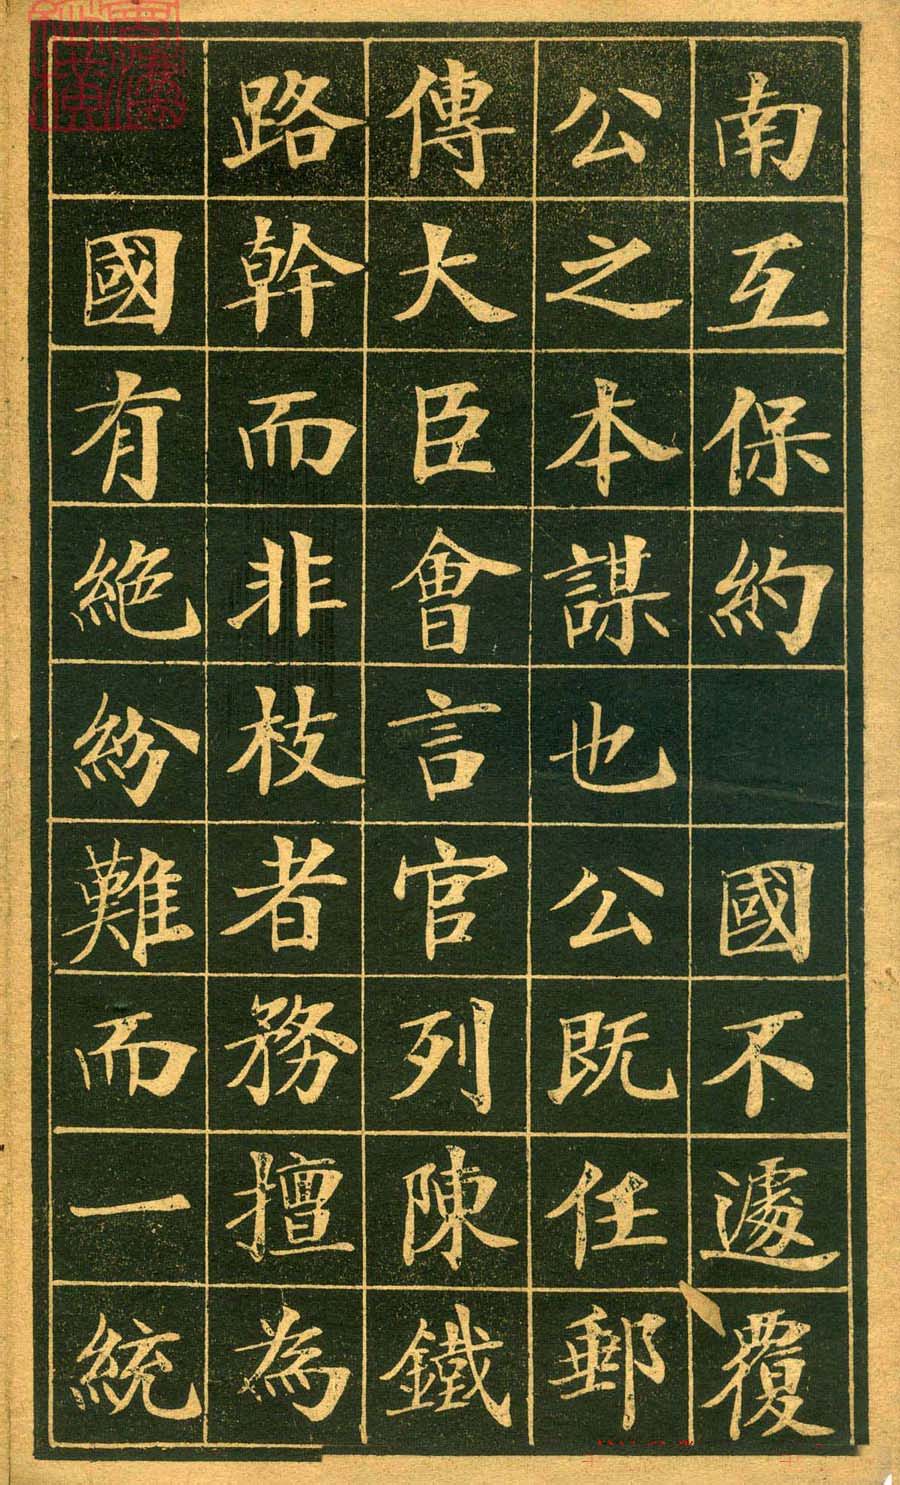 南互保約　國不遽覆
公之本謀也公既任郵
傳大臣會言官列陳鐵
路幹而非枝者務擅為
國有絶紛難而一統